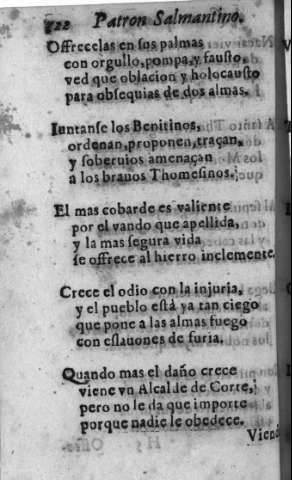 122 Patron Salmantino.
Offrecelas en sus palmas
con orgullo, pompa, y fausto,
ved que oblacion y holocausto
para obsequias de dos almas.
Iuntanse los Benitinos,
ordenan, proponen, traçan,
y soberuios amenaçan
a los brauos Thomesinos.
El mas cobarde es valiente
por el vando que apellida,
y la mas segura vida
se offrece al hierro inclemente.
Crece el odio con la injuria,
y el pueblo està ya tan ciego
que pone a las almas fuego
con eslauones de furia.
Quando mas el daño crece
viene vn Alcalde de Corte,
pero no le da que importe
porque nadie le obedece.
Viend